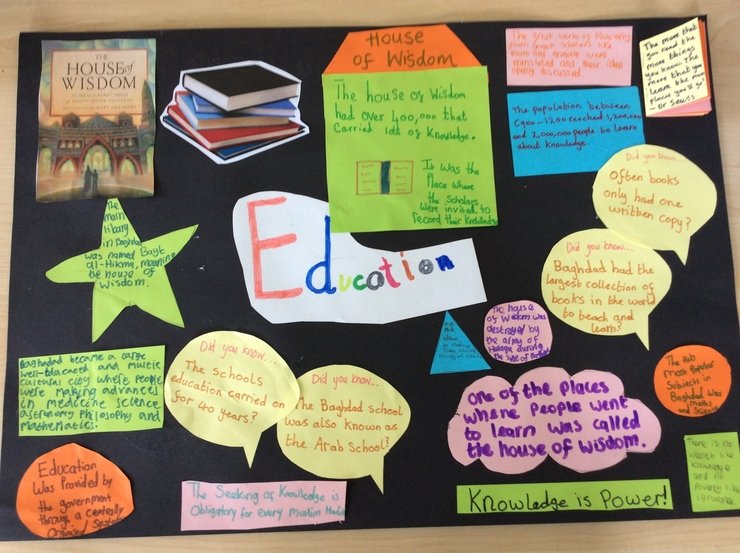 THE
HOUSE of
WISDOM
House
of Wisdom
The house of Wisdom
had over 400,000 that
Carried lott of Knowledge.
It was the
Place where
the Scholars
were invited to
record their Knowledge
The great working Physiology
from Greek Scholars like
Plato and Aristotle were
translated and their idea
openly discussed
The more that
you read the
more things
you know. The
more that you
learn the more
Places you'll go
Dr Seuss
The population between
C900-1200 reached 1,200,000
and 2,000,000 people to learn
about Knowledge.
Did you know...
Often books
only had one
written copy?
Did you know...
Baghdad had the
largest collection of
books in the world
to teach and
learn?
The
main
libary
in Baghdad
was named Bayt
al-Hikma, meaning
the house of
Wisdom.
Education
The house
of Wisdom was
destroyed by
the army of
Halagu during
the siege of Baghdad
Baghdad became a large
well-Educated and multi-
cultural city where people
were making advances
in medecine science
astronomy Philosophy and
Mathematics.
Did you know...
The schools
education carried on
for 40 years?
Did you know...
The Baghdad school
was also known as
the Arab School?
One of the places
where people went
to learn was called
the house of Wisdom.
The two
most Popular
Subjects in
Baghdad was
Maths
and Science
Education
Was Provided by
the government
through a centrally
Organised System
The Seeking of Knowledge is
Obligatory for every Muslim
Knowledge is Power!
There is no
wealth like
knowledge
and no
Poverty like
ignorance